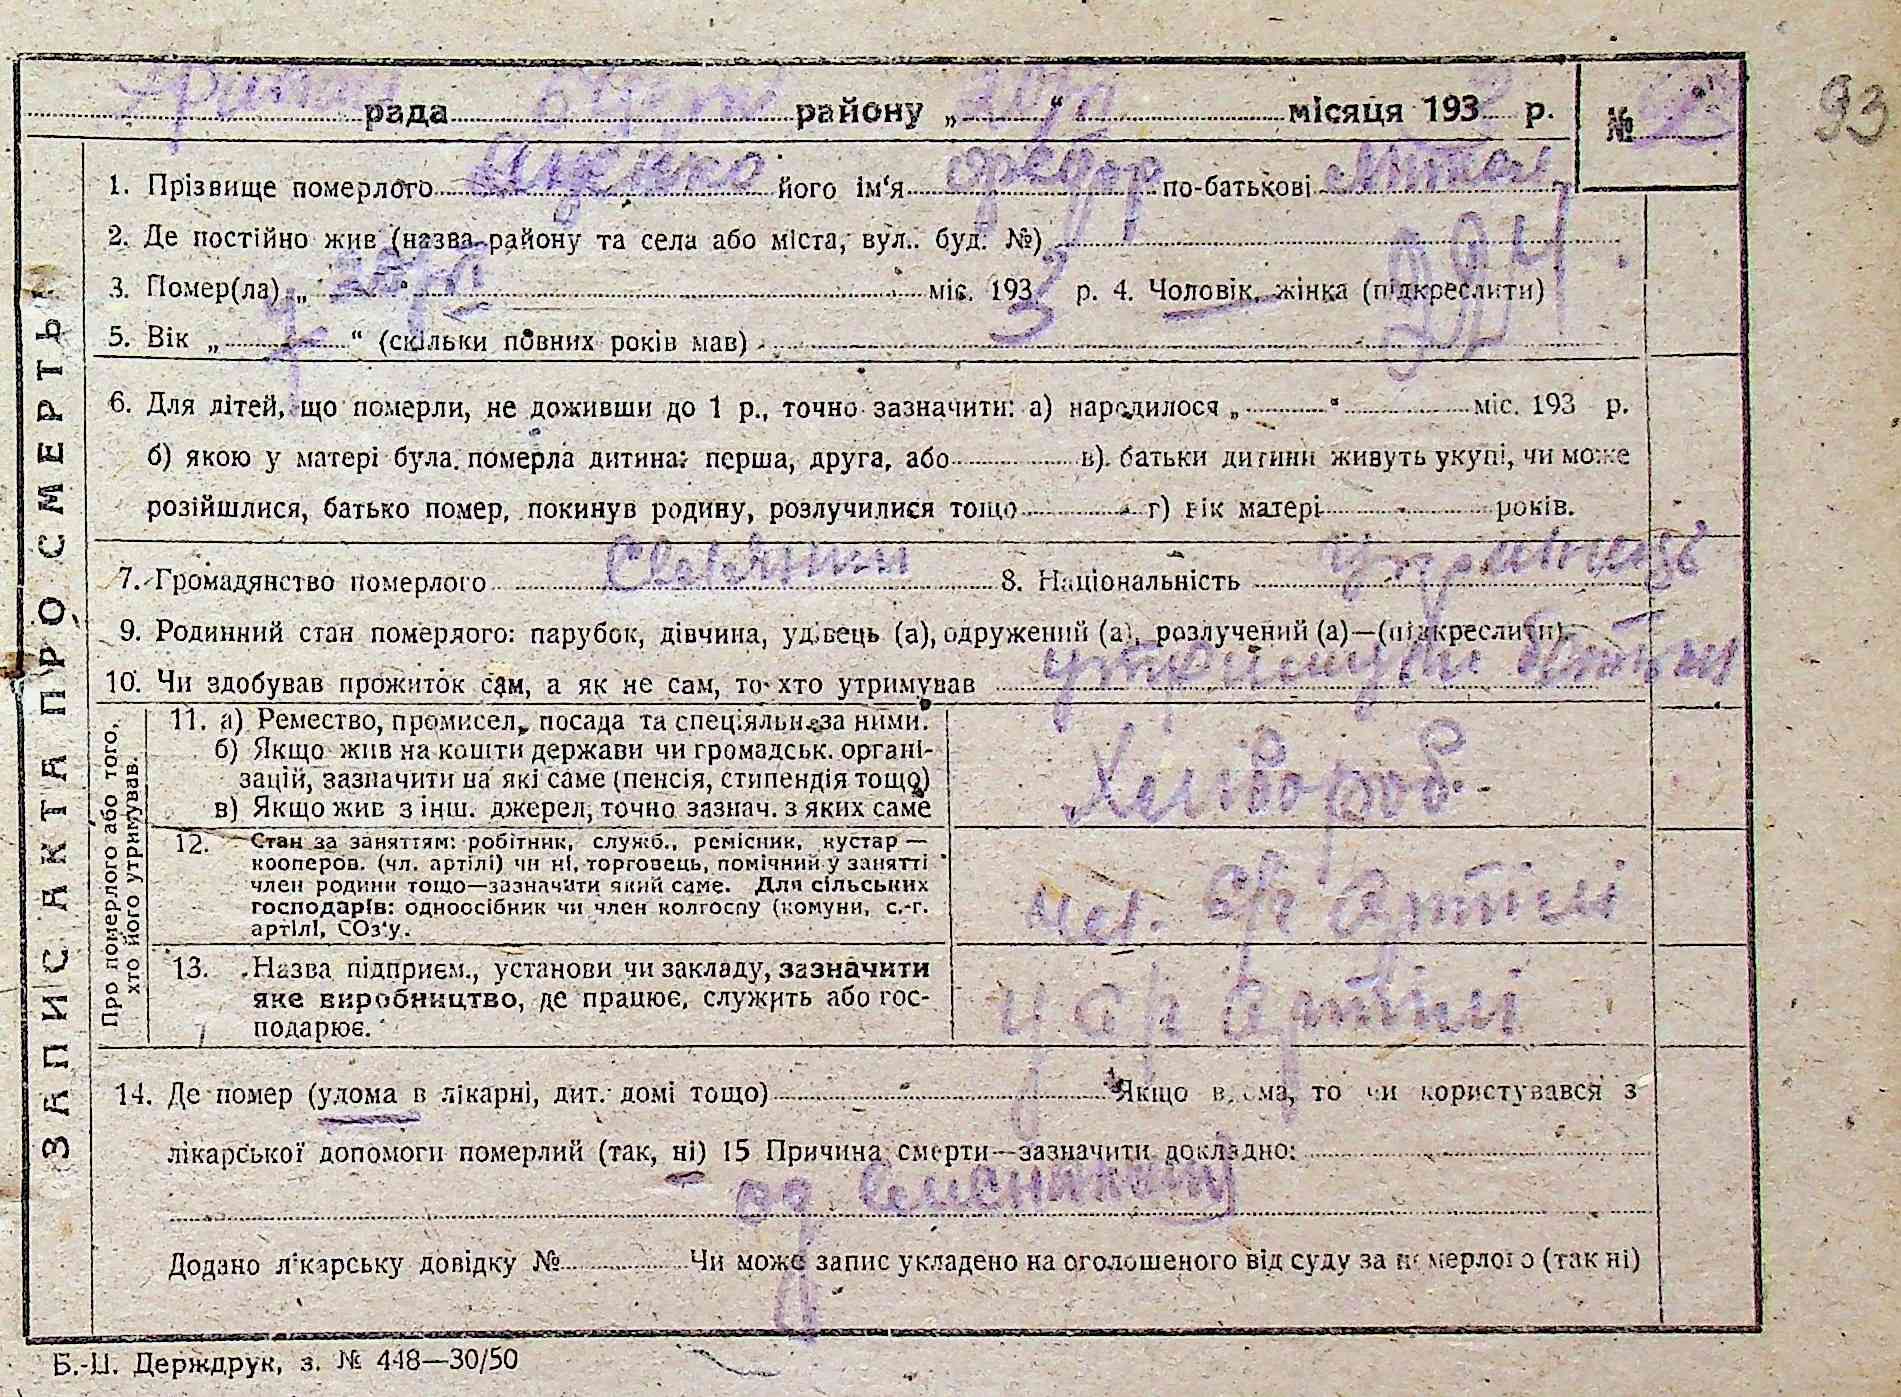 рада району „ “ місяця 193 р. №
93
1. Прізвище померлого Яценко його ім‘я Федор по-батькові
2. Де постійно жив (назва району та села або міста, вул.. буд. №)
3. Помер(ла) „ “ міс. 193 3 р. 4. Чоловік, жінка (підкреслити)
5. Вік „ “ (скільки повних років мав)
6. Для дітей, що померли, не доживши до 1 р., точно зазначити: а) народилося „ “ міс. 193 р.
б) якою у матері була померла дитина: перша, друга, або в) батьки дитини живуть укупі, чи може
розійшлися, батько помер, покинув родину, розлучилися тощо г) вік матері років.
7. Громадянство померлого 8. Національність українець
9. Родинний стан померлого: парубок, дівчина, удівець (а), одружений (а), розлучений (а)—(підкреслити).
10. Чи здобував прожиток сам, а як не сам, то хто утримував утримували батьки
Про померлого або того, хто його утримував.
11. а) Ремество, промисел, посада та спеціяльн. за ними.
б) Якщо жив на кошти держави чи громадськ. органі-
зацій, зазначити на які саме (пенсія, стипендія тощо)
в) Якщо жив з інш. джерел, точно зазнач. з яких саме
Хлібороб
12. Стан за заняттям: робітник, служб., ремісник, кустар —
кооперов. (чл. артілі) чи ні, торговець, помічний у занятті
член родини тощо—зазначити який саме. Для сільських
господарів: одноосібник чи член колгоспу (комуни, с.-г.
артілі, СОз‘у.
чл. с/г артілі
13. Назва підприєм., установи чи закладу, зазначити
яке виробництво, де працює, служить або гос-
подарює.
у с/г артілі
14. Де помер (удома в лікарні, дит. домі тощо) Якщо вдома, то чи користувався з
лікарської допомоги померлий (так, ні) 15 Причина смерти—зазначити докладно:
од
Додано лікарську довідку № Чи може запис укладено на оголошеного від суду за померлого (так ні)
ЗАПИС АКТА ПРО СМЕРТЬ
Б.-Ц. Держдрук, з. № 448—30/50